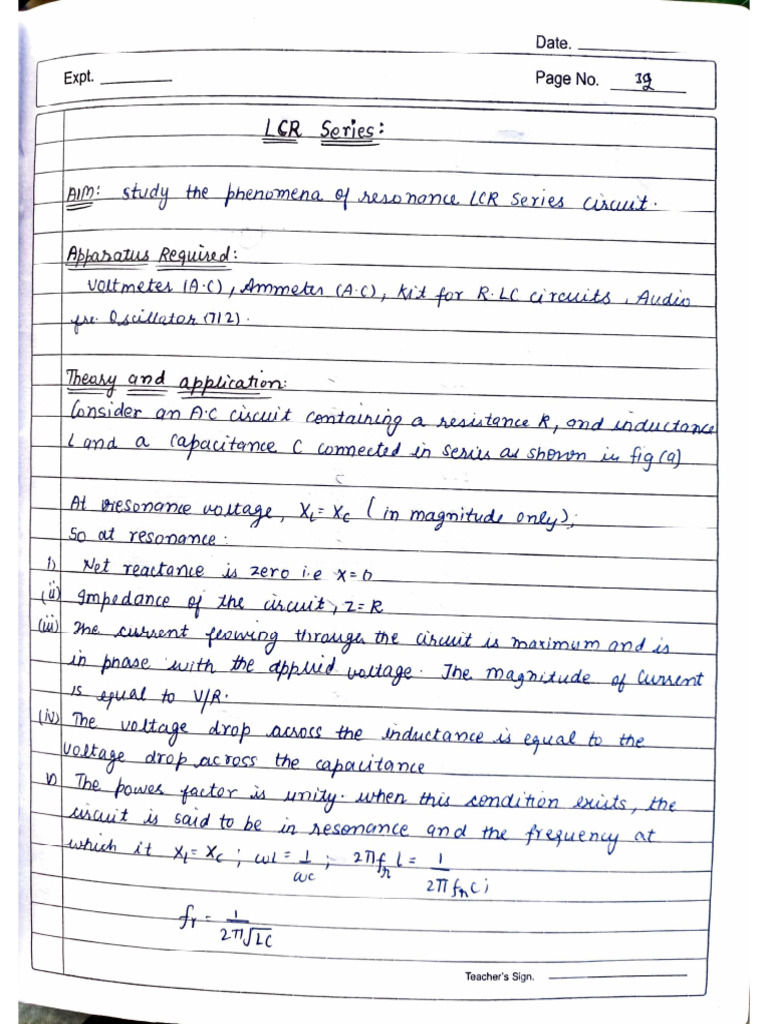 Date.
Expt.
Page No. 39
LCR Series:
AIM: Study the phenomena of resonance LCR Series circuit.
Apparatus Required:
Voltmeter (A.C), Ammeter (A.C), Kit for R.LC circuits, Audio
fre. Oscillator (712).
Theory and application:
Consider an A.C circuit containing a resistance R, and inductance
L and a capacitance C connected in series as shown in fig (a)
At resonance voltage, XL = XC (in magnitude only);
So at resonance:
i) Net reactance is zero i.e X=0
(ii) Impedance of the circuit, Z=R
(iii) The current flowing through the circuit is maximum and is
in phase with the applied voltage. The magnitude of current
is equal to V/R.
(iv) The voltage drop across the inductance is equal to the
voltage drop across the capacitance
v) The power factor is unity. when this condition exists, the
circuit is said to be in resonance and the frequency at
which it XL = XC ; ωL = 1/ωC ; 2πfr L = 1/2πfrC ;
fr = 1/2π√LC
Teacher's Sign.